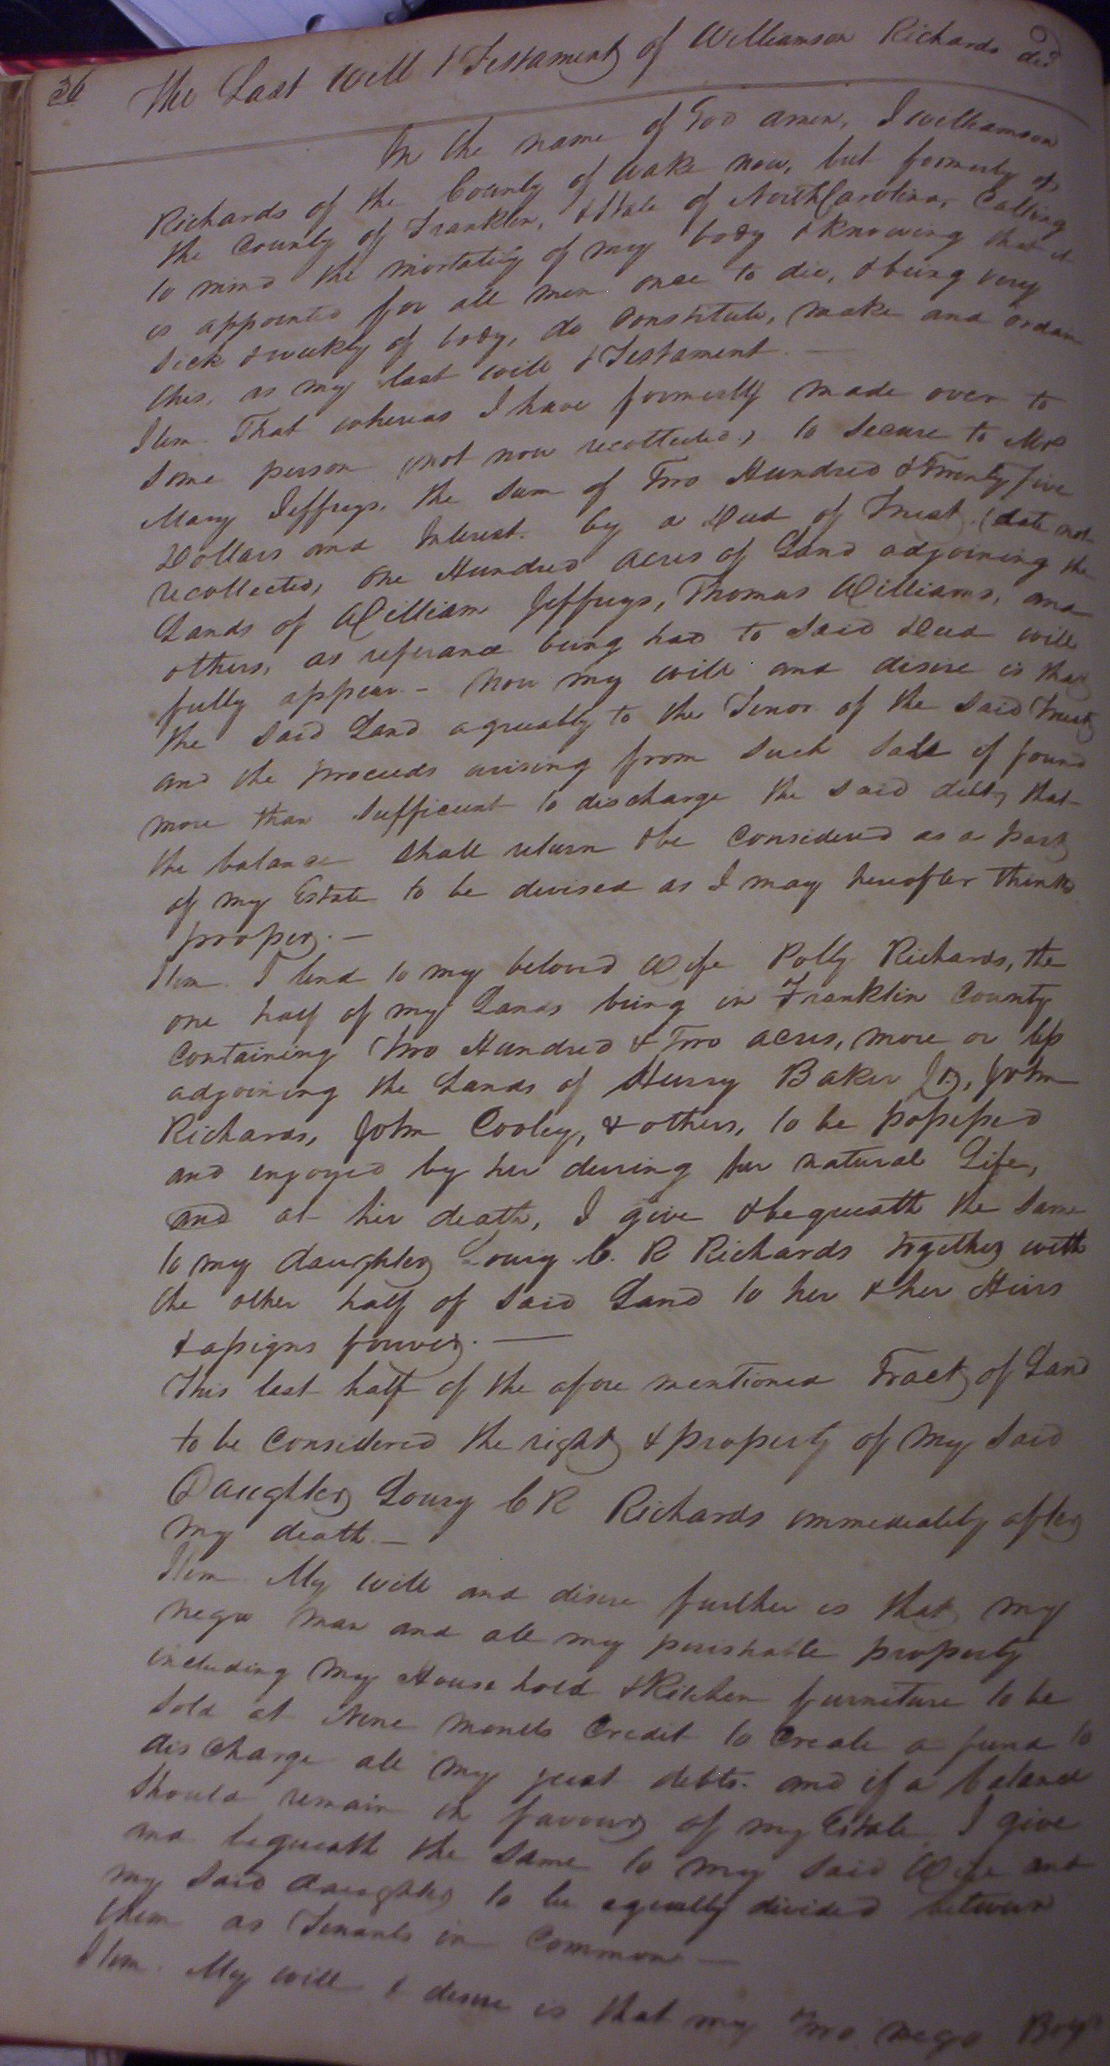 36 The Last Will & Testament of Williamson Richards decd
In the name of God amen, I Williamson
Richards of the County of Wake now, but formerly of
the County of Franklin, & State of North Carolina, Calling
to mind the mortality of my body & knowing that it
is appointed for all men once to die, & being very
Sick & weekly of body, do Constitute, make and ordain
this, as my last will & Testament —
Item. That whereas I have formerly made over to
Some person (not now recollected,) to Secure to Mrs
Mary Jeffreys, the Sum of Two Hundred & Twenty five
Dollars and Interest. by a Deed of Trust, (date not
recollected, One Hundred acres of Land adjoining the
Lands of William Jeffreys, Thomas Williams, and
others, as referance being had to Said Deed will
fully appear - Now my will and desire is that
the Said Land agreeably to the Tenor of the Said Trust
and the proceeds arising from Such Sale if found
more than Sufficient to discharge the Said debt, that
the balance Shall return & be Considered as a part
of my Estate to be devised as I may hereafter think
proper. —
Item. I lend to my beloved Wife Polly Richards, the
one half of my Lands being in Franklin County
Containing Two Hundred & Two acres, more or less
adjoining the Lands of Henry Baker Jr, John
Richards, John Cooley, & others, to be possessed
and enjoyed by her during her natural Life,
and at her death, I give & bequeath the Same
to my daughter Loury C. R Richards together with
the other half of Said Land to her & her Heirs
& assigns forever. —
This last half of the afore mentioned Tract of Land
to be Considered the right & property of my Said
Daughter Loury C R Richards immediately after
my death. —
Item My will and desire further is that my
negro man and all my perishable property
including my House hold & Kitchen furniture to be
Sold at Nine months Credit to Create a fund to
discharge all my just debts. and if a balance
Should remain in favour of my Estate I give
and bequeath the Same to my Said Wife and
my Said daughter to be equally divided between
them as Tenants in Common —
Item. My will & desire is that my Two negro Boys